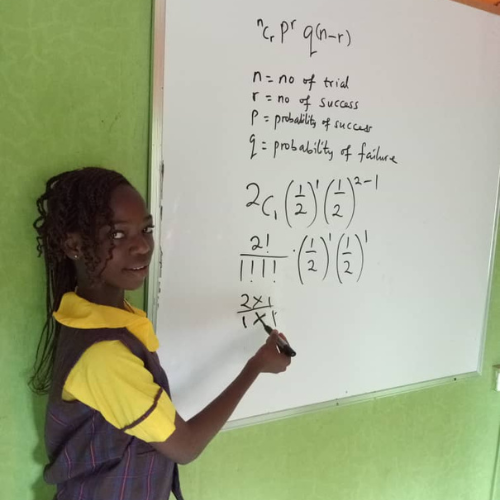 ⁿCᵣ Pʳ q(n-r)
n = no of trial
r = no of success
P = probability of success
q = probability of failure
2C₁ (1/2)¹ (1/2)²⁻¹
2!/1!1! · (1/2)¹ (1/2)¹
2×1/1×1